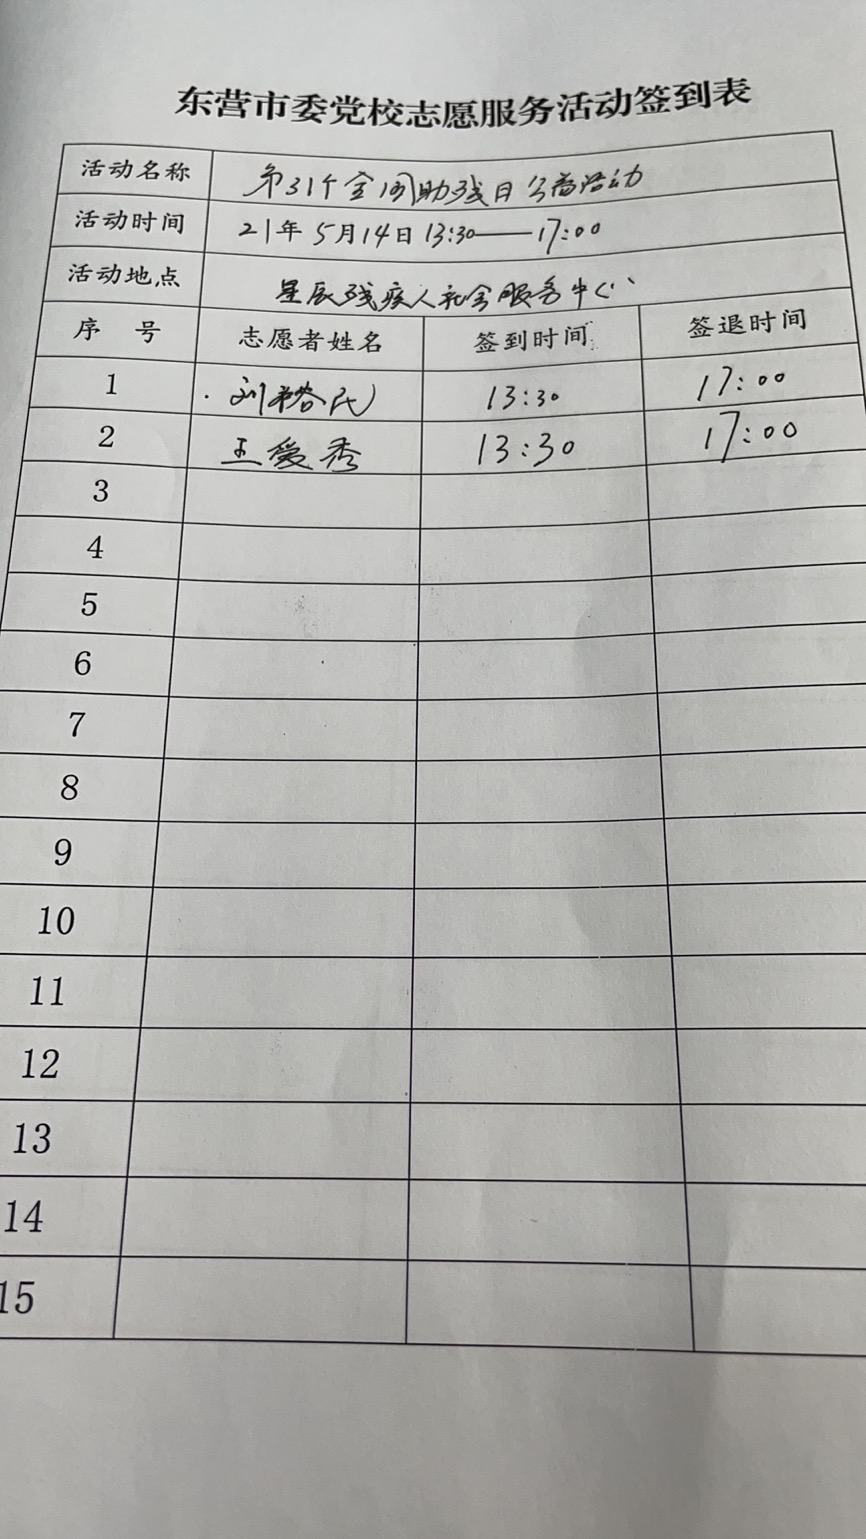 东营市委党校志愿服务活动签到表
活动名称 第31个全国助残日公益活动
活动时间 21年5月14日13:30——17:00
活动地点 星辰残疾人社会服务中心
序 号 志愿者姓名 签到时间 签退时间
1 刘裕民 13:30 17:00
2 王爱秀 13:30 17:00
3
4
5
6
7
8
9
10
11
12
13
14
15